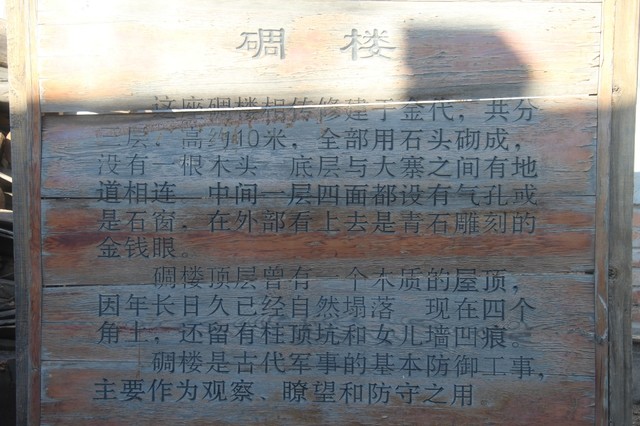 碉 楼
这座碉楼相传修建于金代，共分
三层，高约10米，全部用石头砌成，
没有一根木头 底层与大寨之间有地
道相连 中间一层四面都设有气孔或
是石窗，在外部看上去是青石雕刻的
金钱眼。
碉楼顶层曾有一个木质的屋顶，
因年长日久已经自然塌落 现在四个
角上，还留有柱顶坑和女儿墙凹痕。
碉楼是古代军事的基本防御工事，
主要作为观察、瞭望和防守之用